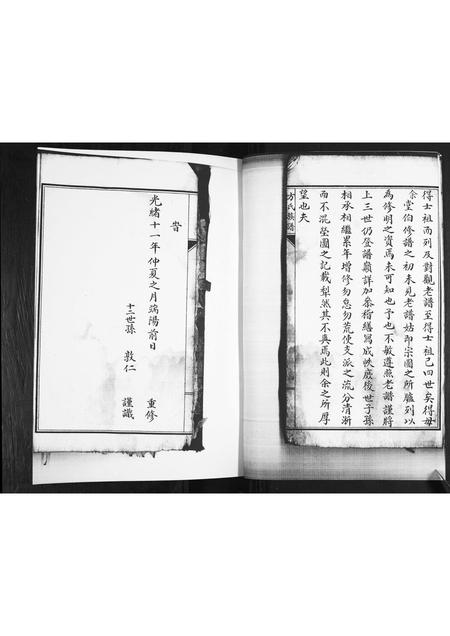 得士祖而列及對觀老譜至得士祖已四世矣得毋
余堂伯修譜之初未見老譜姑即宗圖之所臚列以
為修明之資焉未可知也予也不敏遵照老譜謹將
上三世仍登譜巔詳加叅稽繕寫成帙底後世子孫
相承相繼累年增修勿怠勿荒使支派之流分清浙
而不混塋圖之記載犁然其不爽焉此則余之所厚
望也夫
方氏族譜
旹
光緒十一年仲夏之月端陽前日
十二世孫 敦仁 重修 謹識